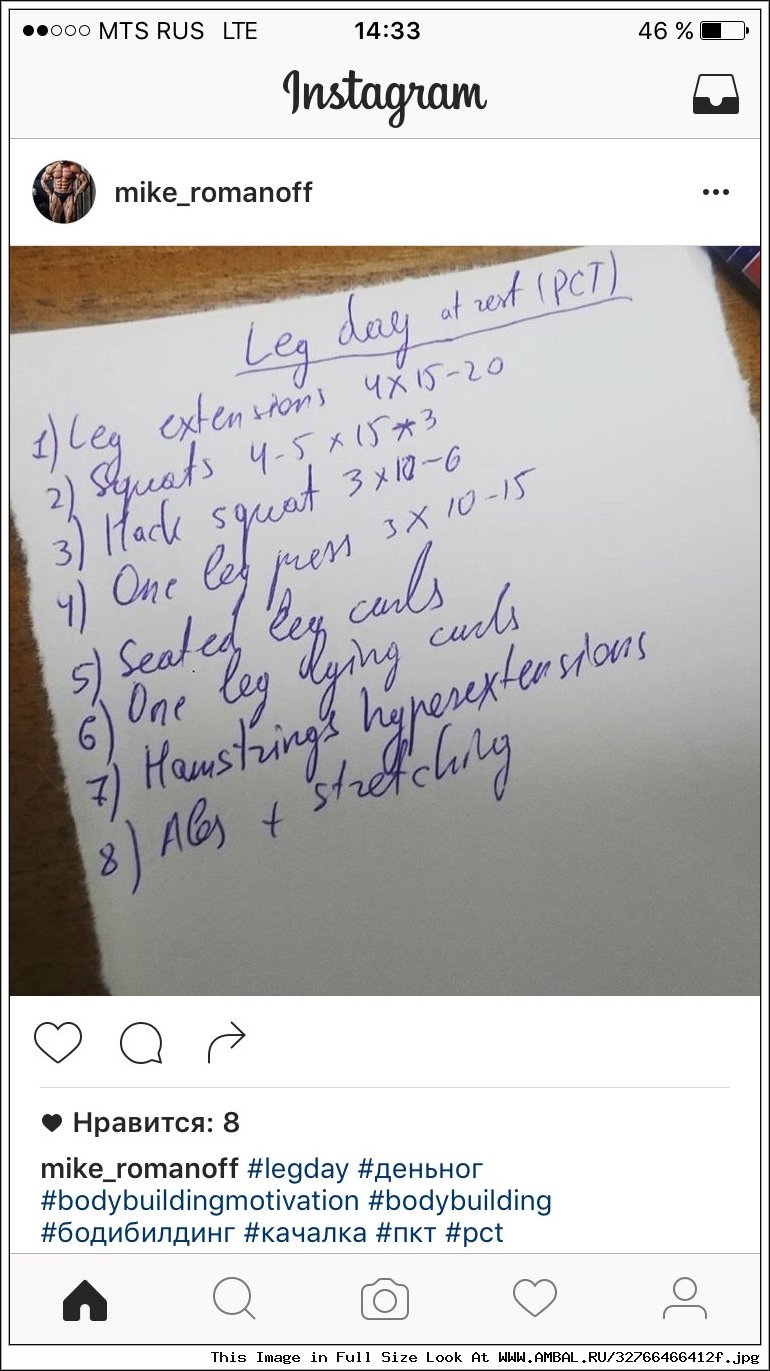 MTS RUS LTE 14:33 46 %
Instagram
mike_romanoff
Leg day at rest (PCT)
1) Leg extensions 4x15-20
2) Squats 4-5 x 15*3
3) Hack squat 3x10-6
4) One leg press 3x10-15
5) Seated leg curls
6) One leg lying curls
7) Hamstrings hyperextensions
8) Abs + stretching
Нравится: 8
mike_romanoff #legday #деньног
#bodybuildingmotivation #bodybuilding
#бодибилдинг #качалка #пкт #pct
This Image in Full Size Look At WWW.AMBAL.RU/32766466412f.jpg